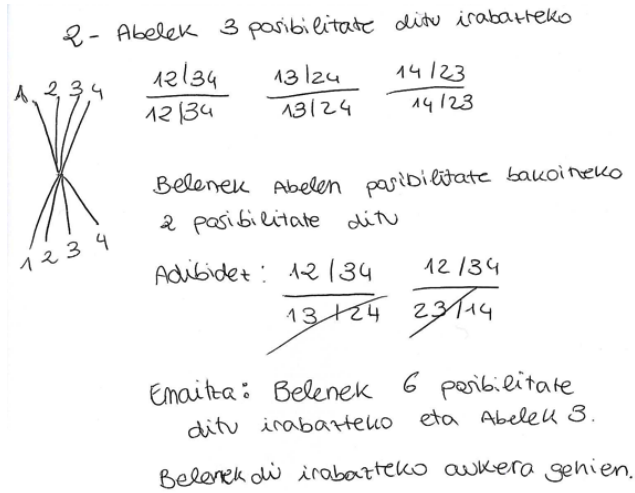 2- Abelek 3 posibilitate ditu irabazteko
1 2 3 4
12/34 13/24 14/23
12/34 13/24 14/23
1 2 3 4
Belenek Abelen posibilitate bakoitzeko
2 posibilitate ditu
Adibidez: 12/34 12/34
13/24 23/14
Emaitza: Belenek 6 posibilitate
ditu irabazteko eta Abelek 3.
Belenek du irabazteko aukera gehien.